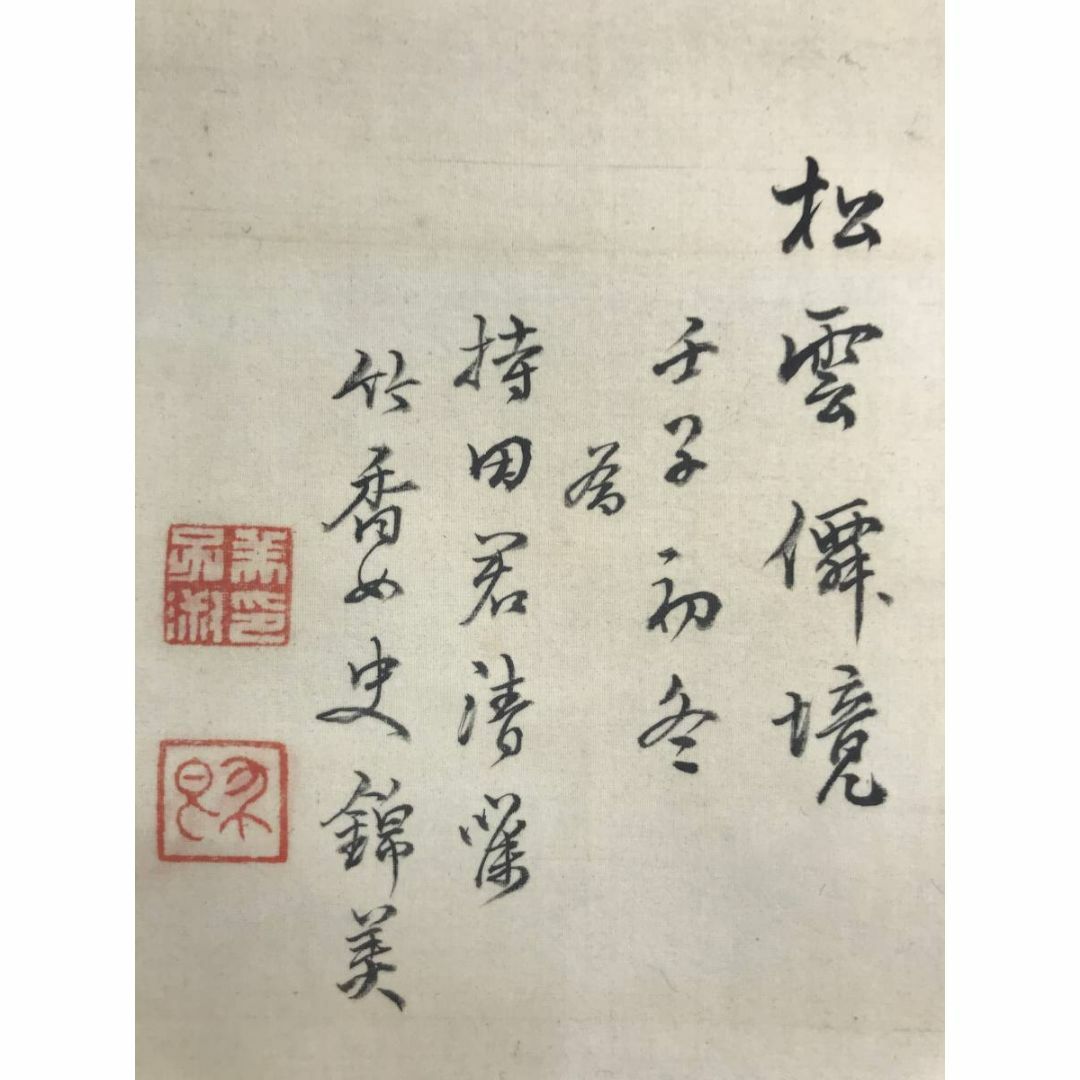 松雲僊境
壬子初冬
為
持田君清嘱
竹香女史錦美